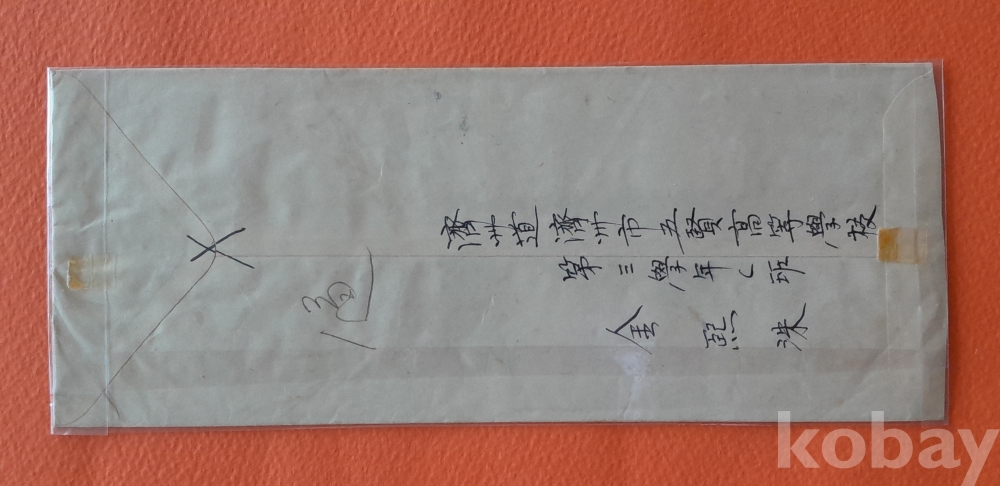 濟州道濟州市五賢高等學校
第三學年乙班
金熙洙
kobay